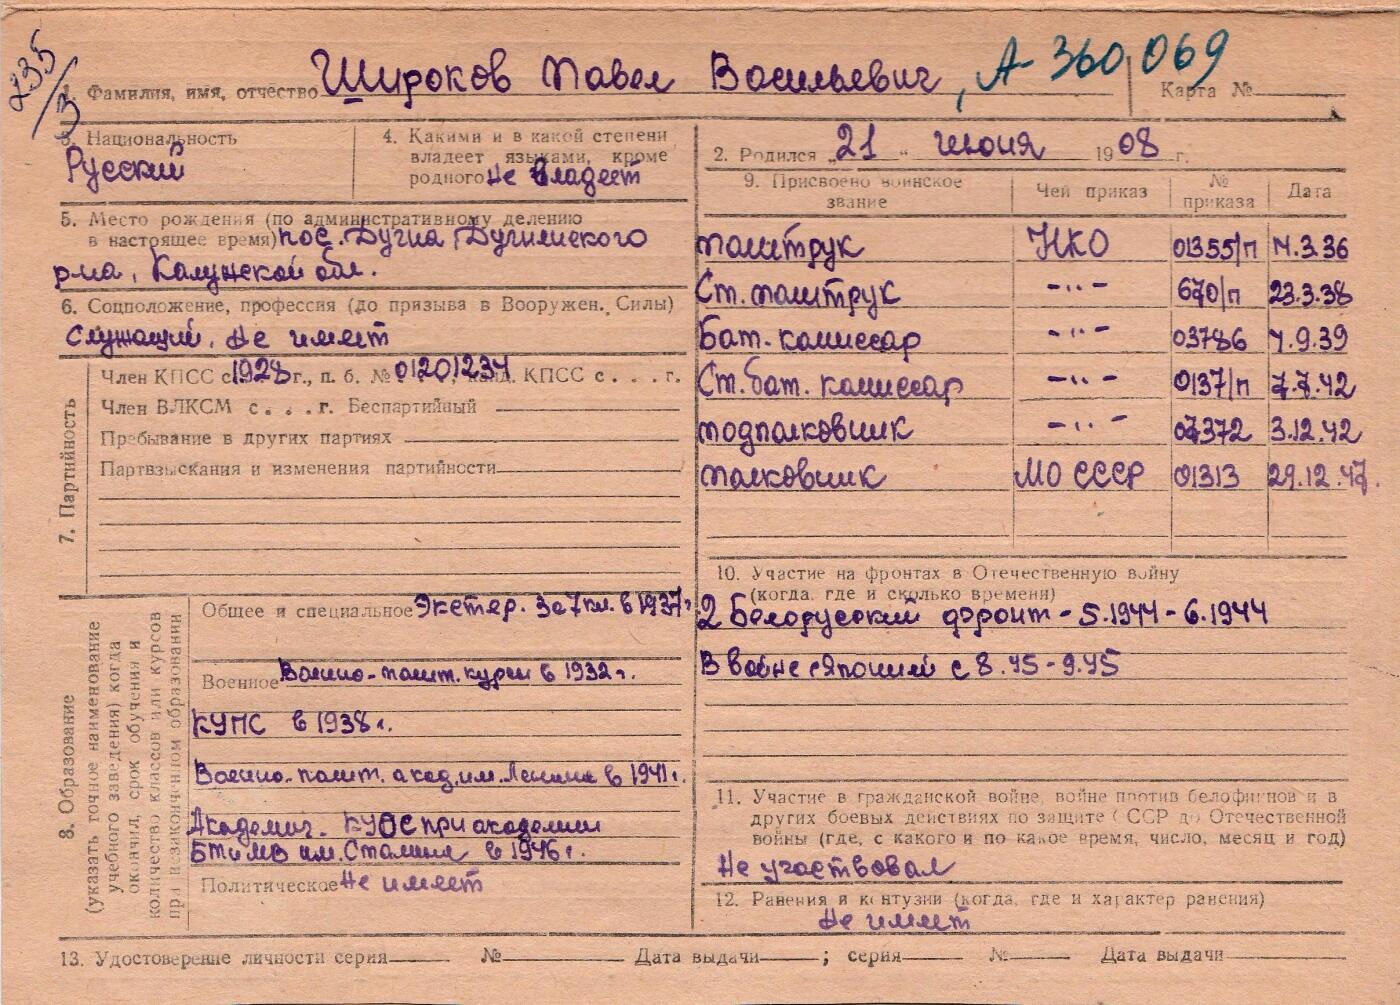 235/3
1. Фамилия, имя, отчество Широков Павел Васильевич, А-360069
Карта №
3. Национальность
Русский
4. Какими и в какой степени
владеет языками, кроме
родного Не владеет
5. Место рождения (по административному делению
в настоящее время) пос. Дугна, Дугнинского
р-на, Калужской обл.
6. Соцположение, профессия (до призыва в Вооружен. Силы)
Служащий, Не имеет
7. Партийность
Член КПСС с 1928 г., п. б. № 01201234, канд. КПСС с . . . г.
Член ВЛКСМ с . . . г. Беспартийный
Пребывание в других партиях
Партвзыскания и изменения партийности
8. Образование
(указать точное наименование
учебного заведения) когда
окончил, срок обучения и
количество классов или курсов
при незаконченном образовании
Общее и специальное Экстер. за 7 кл. в 1937 г.
Военное Военно-полит. курсы в 1932 г.
КУПС в 1938 г.
Военно-полит. акад. им. Ленина в 1941 г.
Академич. КУОС при академии
БТиМВ им. Сталина в 1946 г.
Политическое Не имеет
2. Родился „21“ июня 1908 г.
9. Присвоено воинское звание Чей приказ № приказа Дата
политрук НКО 01355/п 4.3.36
Ст. политрук -"- 670/п 23.3.38
Бат. комиссар -"- 03786 4.9.39
Ст. бат. комиссар -"- 0137/п 7.7.42
подполковник -"- 07372 3.12.42
полковник МО СССР 01313 29.12.47.
10. Участие на фронтах в Отечественную войну
(когда, где и сколько времени)
2 Белорусский фронт - 5.1944 - 6.1944
В войне с Японией с 8.45 - 9.45
11. Участие в гражданской войне, войне против белофиннов и в
других боевых действиях по защите СССР до Отечественной
войны (где, с какого и по какое время, число, месяц и год)
Не участвовал
12. Ранения и контузии (когда, где и характер ранения)
Не имеет
13. Удостоверение личности серия № Дата выдачи ; серия № Дата выдачи